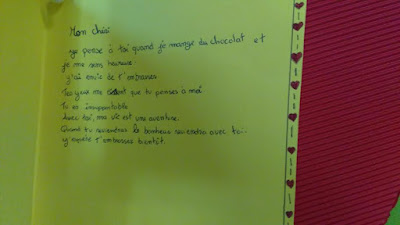 Mon chéri
je pense à toi quand je mange du chocolat et
je me sens heureuse.
j'ai envie de t'embrasser
Tes yeux me disent que tu penses à moi
Tu es insupportable
Avec toi, ma vie est une aventure.
Quand tu reviendras le bonheur reviendra avec toi.
j'espère t'embrasser bientôt.